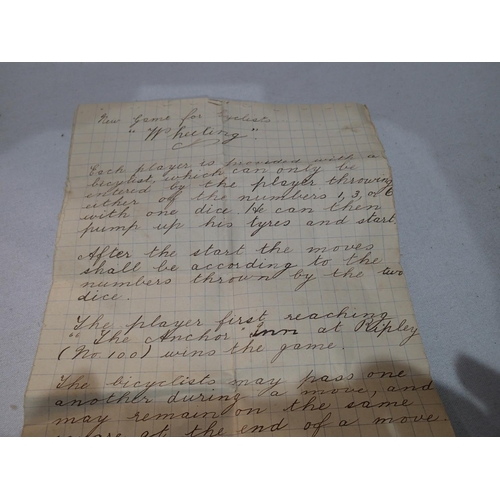 New Game for Cyclists
"Wheeling"
Each player is provided with a
bicyclist, which can only be
entered by the player throwing
either of the numbers 1, 3, or 6
with one dice. He can then
pump up his tyres and start.
After the start the moves
shall be according to the
numbers thrown by the two
dice.
The player first reaching
"The Anchor" Inn at Ripley
(No. 100) wins the game.
The bicyclists may pass one
another during a move, and
may remain on the same
square at the end of a move.